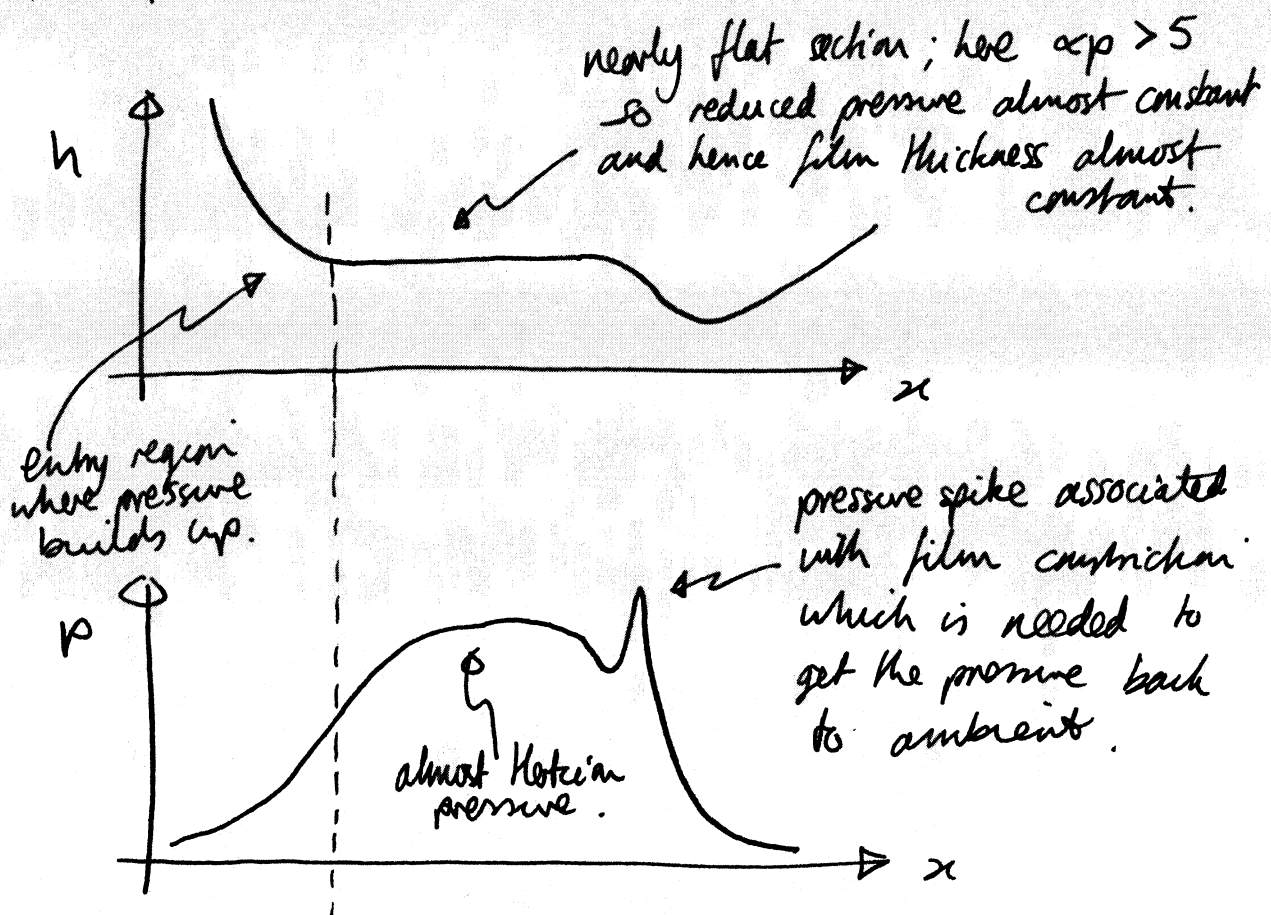 nearly flat section; here αp > 5
so reduced pressure almost constant
and hence film thickness almost
constant.
h
x
entry region
where pressure
builds up.
pressure spike associated
with film constriction
which is needed to
get the pressure back
to ambient.
p
almost Hertzian
pressure.
x